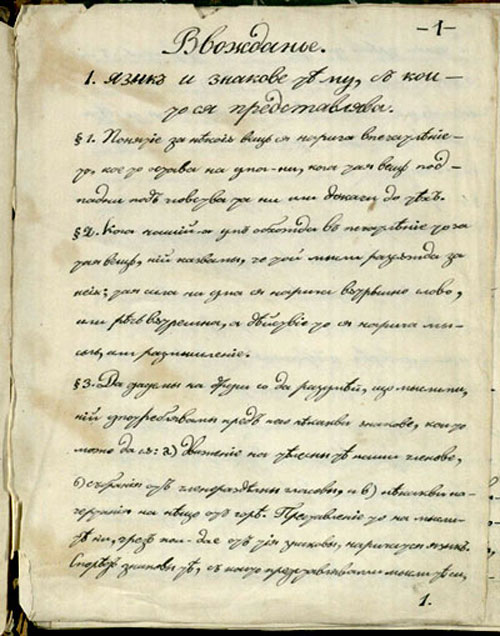 -1-
Ввожданье.
1. языкъ и знакове тѣ му, съ кои-
то ся представлява.
§1. Понятіе за нѣкоя вещь ся нарича впечатлѣніе-
то, кое то остава на ума-ни, кога тая вещь под-
падни подъ чювства та ни или докачи до тѣхъ.
§2. Кога нашій-а умъ обхожда впечатлѣніе то за
тая вещь, ній казвамы, че той мысли разсѫжда за
нея; тая сила на ума ся нарича вѫтрѣшно слово,
или рѣчь вѫтрешна, а дѣйствіе то ся нарича мы-
сль, или размышленіе.
§3. Да дадемы на други го да разумѣй, що мыслимы,
ній употребявамы предъ него нѣкакви знакове, кои то
може да сѫ: а) движеніе на тѣлесны тѣ наши членове,
б) събраніе отъ членораздѣлны гласовы, и в) нѣкакви на-
чертанія на нѣщо отъ горѣ. Представленіе то на мысли-
тѣ ни, чрезъ кои-да е отъ тія знаковы, нарича ся языкъ.
Споредъ знаковы тѣ, съ които представлявамы мысли тѣ си,
1.